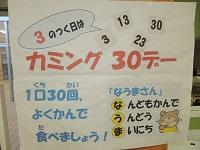 3のつく日は
3 13 30
23
カミング30デー
1日30回、
よくかんで
食べましょう!
「なうまさん」
なんどもかんで
うんどう
まいにち